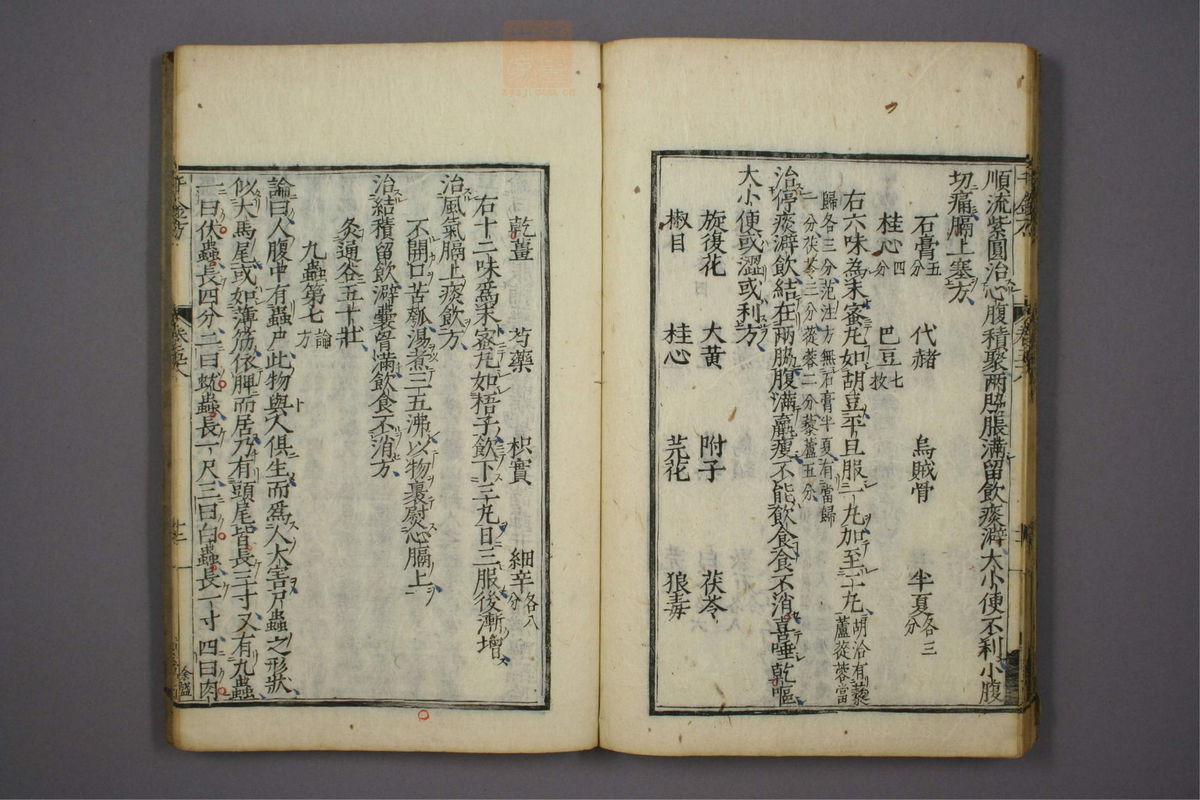 順流紫圓治心腹積聚兩脇脹滿留飲痰澼大小便不利小腹
切痛膈上塞方
石膏五分 代赭 烏賊骨 半夏各三分
桂心四分 巴豆七枚
右六味為末蜜丸如胡豆平旦服一丸加至二丸胡洽有藜蘆蓯蓉當
歸各三分范汪方無石膏半夏有當歸
一分茯苓三分蓯蓉二分藜蘆五分
治停痰澼飲結在兩脇腹滿羸瘦不能飲食食不消喜唾乾嘔
大小便或澀或利方
旋復花 大黄 附子 茯苓
椒目 桂心 芫花 狼毒
乾薑 芍藥 枳實 細辛各八分
右十二味爲末蜜丸如梧子飲下三丸日三服後漸増
治風氣膈上痰飲方
不開口苦瓠湯煮三五沸以物裹熨心膈上
治結積留飲澼囊胷滿飲食不消方
灸通谷五十壯
九蟲第七論方
論曰人腹中有蟲尸此物與人俱生而爲人大害尸蟲之形狀
似大馬尾或如薄筋依脾而居乃有頭尾皆長三寸又有九蟲
一曰伏蟲長四分二曰蚘蟲長一尺三曰白蟲長一寸四曰肉